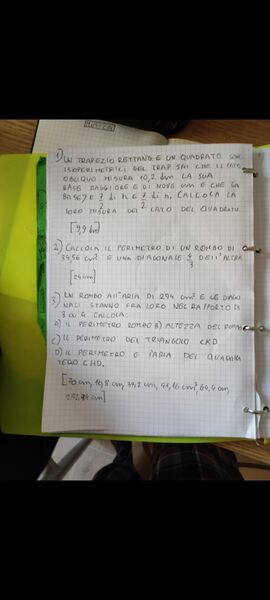 1) UN TRAPEZIO RETTANG E UN QUADRATO SONO
ISOPERIMETRICI DEL TRAP SAI CHE IL LATO
OBLIQUO MISURA 10,2 dm LA SUA
BASE MAGGIORE E DI NOVE cm E CHE LA
BASE 7/2 di h E 7/2 di h, CALCOLA LA
LORO MISURA DEL LATO DEL QUADRATO.
[9,9 dm]
2) CALCOLA IL PERIMETRO DI UN ROMBO DI
34,56 cm² E UNA DIAGONALE 4/3 DELL'ALTRA
[24 cm]
3) UN ROMBO All'ARIA DI 294 cm² E LE DIAGO
NALI STANNO FRA LORO NEL RAPPORTO DI
3 SU 4 CALCOLA:
A) IL PERIMETRO ROMBO B) ALTEZZA DEL ROMBO
C) IL PERIMETRO DEL TRIANGOLO CKD
D) IL PERIMETRO E l'ARIA DEL QUADRILA
TERO CHD.
[70 cm, 16,8 cm, 39,2 cm, 41,16 cm², 64,4 cm,